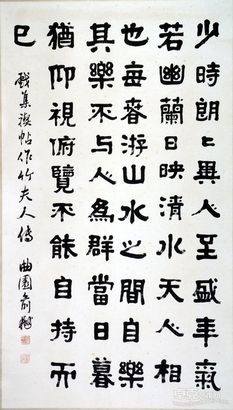 少時朗〻異人至盛年氣
若幽蘭日映清水天人相
也每春游山水之間自樂
其樂不与人為群當日暮
猶仰視俯覽不能自持而
已
戲集禊帖作竹夫人傳 曲園俞樾